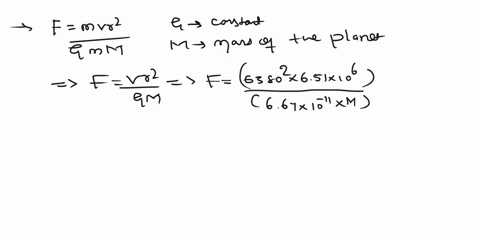 → F = mvr² / GmM G → constant
M → mass of the planet
=> F = Vr² / GM => F = (6380² × 6.51 × 10⁶) / (6.67 × 10⁻¹¹ × M)